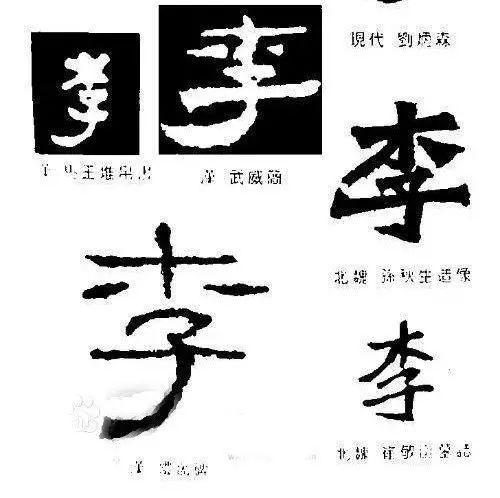 現代 劉炳森
李
李
王堆帛
漢 武威簡
李
北魏 孫秋生造像
李
李
漢
北魏 崔敏 墓誌